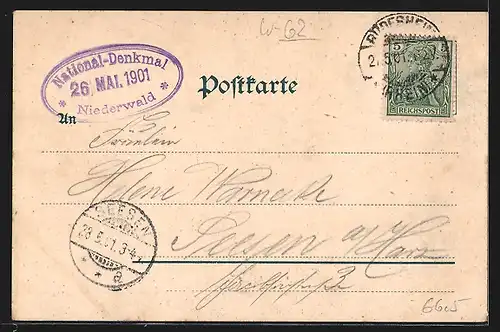 W-62
National-Denkmal
26 MAI. 1901
Niederwald
RÜDESHEIM
(RHEIN)
5 5
REICHSPOST
Postkarte
An
Fräulein
Helene Warnecke
Seesen a/Harz
SEESEN
28.5.01. 3-4
* * a